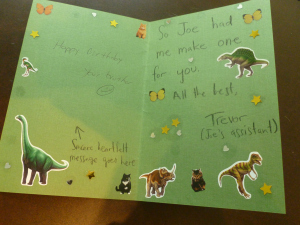 Happy Birthday
Sincere heartfelt
message goes here
So Joe had
me make one
for you.
All the best,
Trevor
(Joe's assistant)